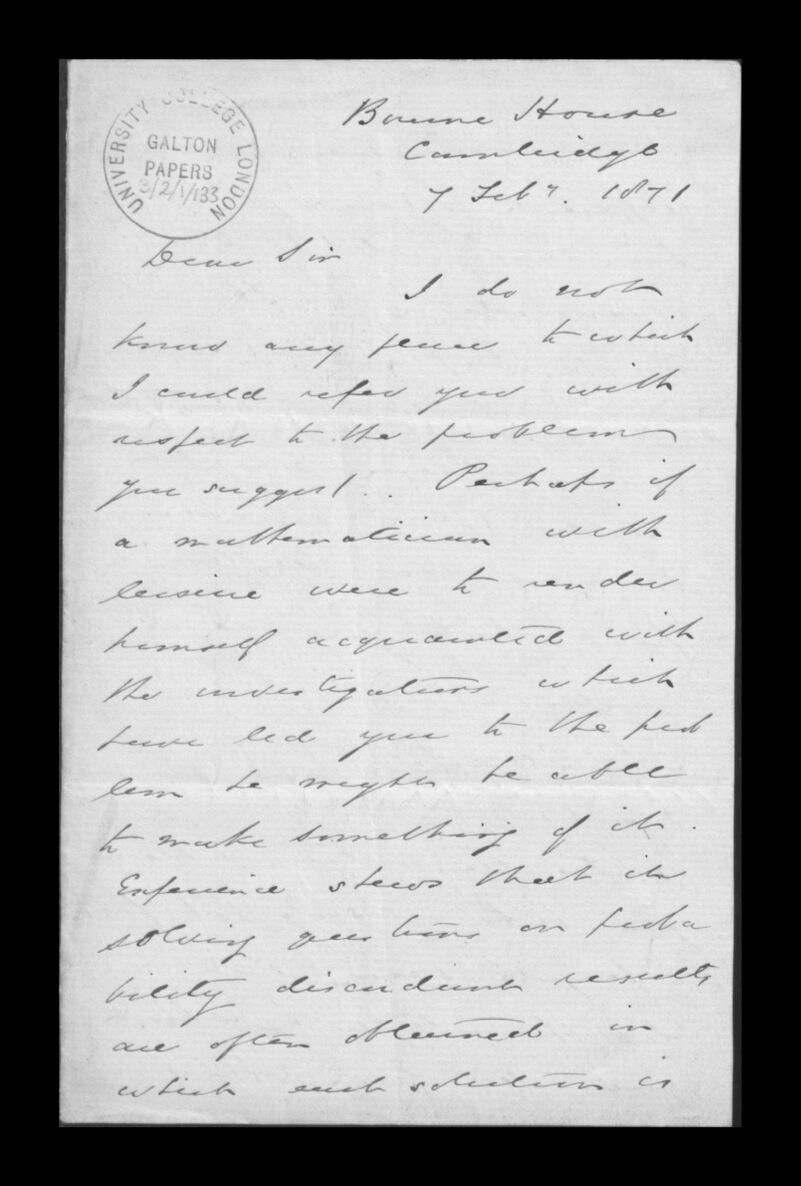 UNIVERSITY COLLEGE LONDON
GALTON
PAPERS
3/2/1/133
Bourne House
Cambridge
7 Feby. 1871
Dear Sir
I do not
know any place to which
I could refer you with
respect to the problem
you suggest.. Perhaps if
a mathematician with
leisure were to render
himself acquainted with
the investigations which
have led you to the prob
lem he might be able
to make something of it.
Experience shews that in
solving questions on proba
bility discordant results
are often obtained in
which each solution is